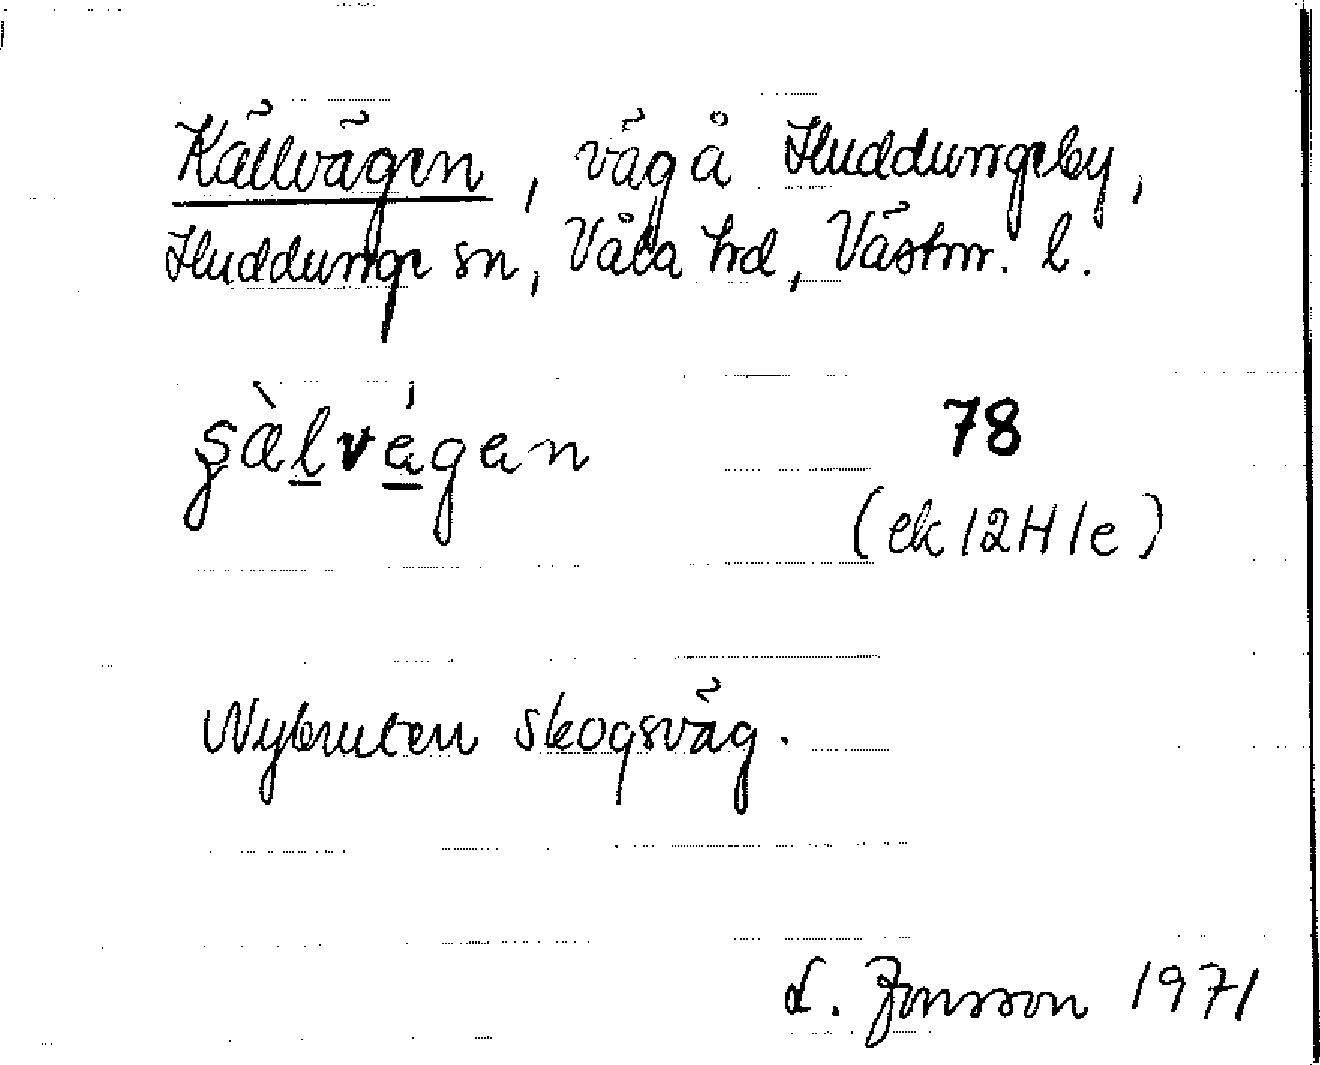 Källvägen, väg å Huddungeby,
Huddunge sn, Våla hd, Västm. l.
şàlvágen 78
(ek 12H1e)
Nybruten skogsväg.
L. Jonsson 1971